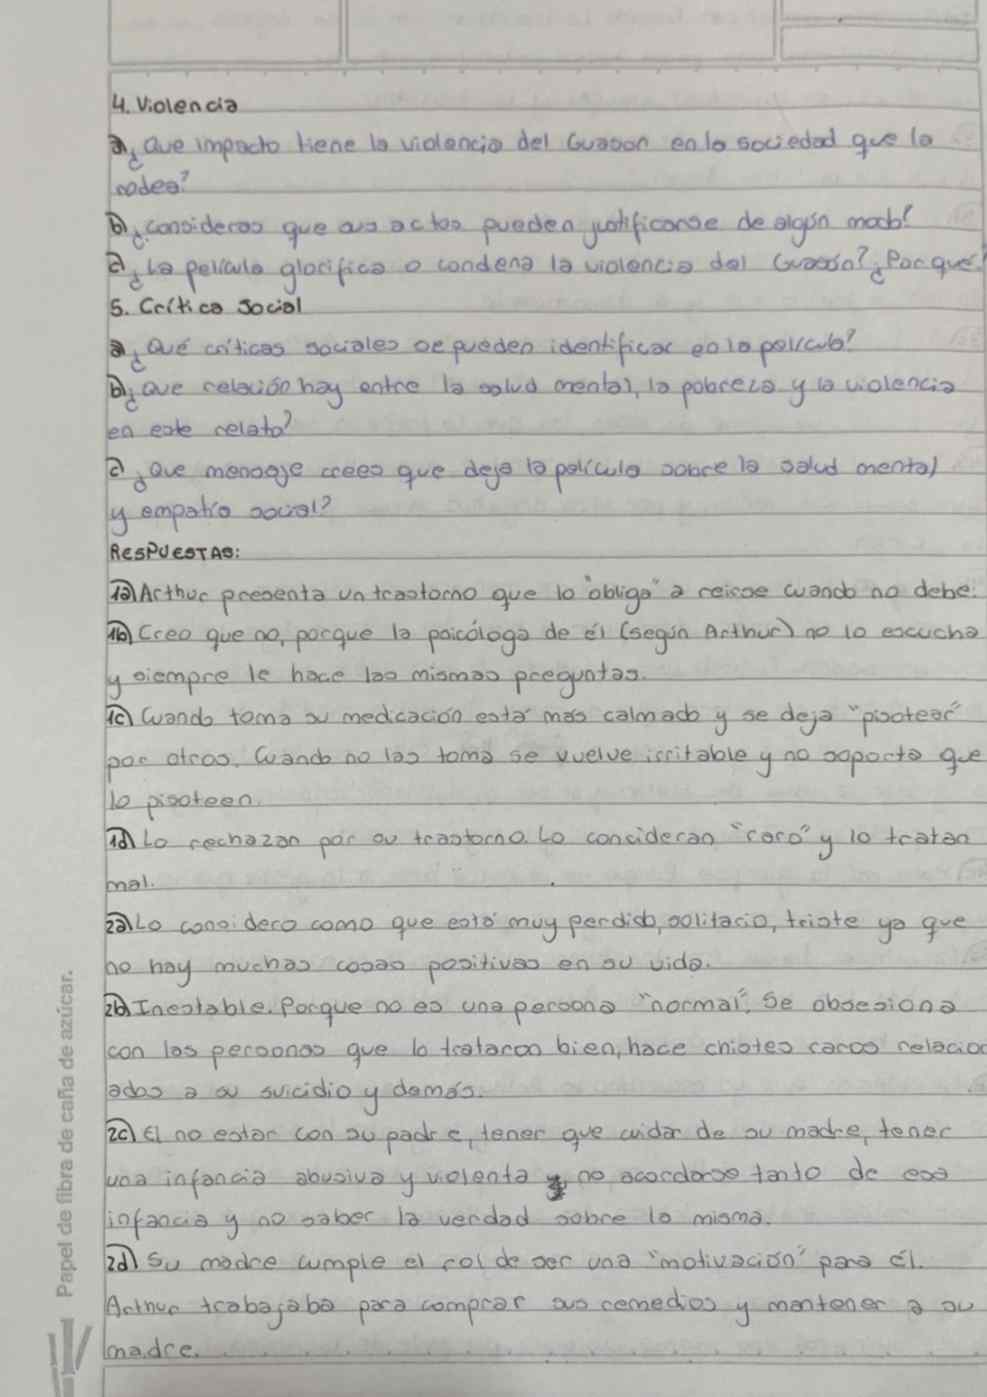 4. Violencia
a) ¿Que impacto tiene la violencia del Guason en la sociedad que lo
rodea?
b) ¿consideras que sus actos pueden justificarse de algún modo?
c) ¿La película glorifica o condena la violencia del Guasón? ¿Por qué?
5. Crítica Social
a) ¿Qué críticas sociales se pueden identificar en la película?
b) ¿Que relación hay entre la salud mental, la pobreza y la violencia
en este relato?
c) ¿Que mensaje crees que deja la película sobre la salud mental
y empatía social?
RESPUESTAS:
1a) Arthur presenta un trastorno que lo "obliga" a reirse cuando no debe.
1b) Creo que no, porque la psicóloga de él (según Arthur) no lo escucha
y siempre le hace las mismas preguntas.
1c) Cuando toma su medicación está más calmado y se deja "pisotear"
por otros. Cuando no las toma se vuelve irritable y no soporta que
lo pisoteen.
1d) Lo rechazan por su trastorno. Lo concideran "raro" y lo tratan
mal.
2a) Lo considero como que está muy perdido, solitario, triste ya que
no hay muchas cosas positivas en su vida.
2b) Inestable. Porque no es una persona "normal". Se obsesiona
con las personas que lo trataron bien, hace chistes raros relacion
ados a su suicidio y demás.
2c) El no estar con su padre, tener que cuidar de su madre, tener
una infancia abusiva y violenta y no acordarse tanto de esa
infancia y no saber la verdad sobre la misma.
2d) Su madre cumple el rol de ser una "motivación" para él.
Arthur trabajaba para comprar sus remedios y mantener a su
madre.
Papel de fibra de caña de azúcar.